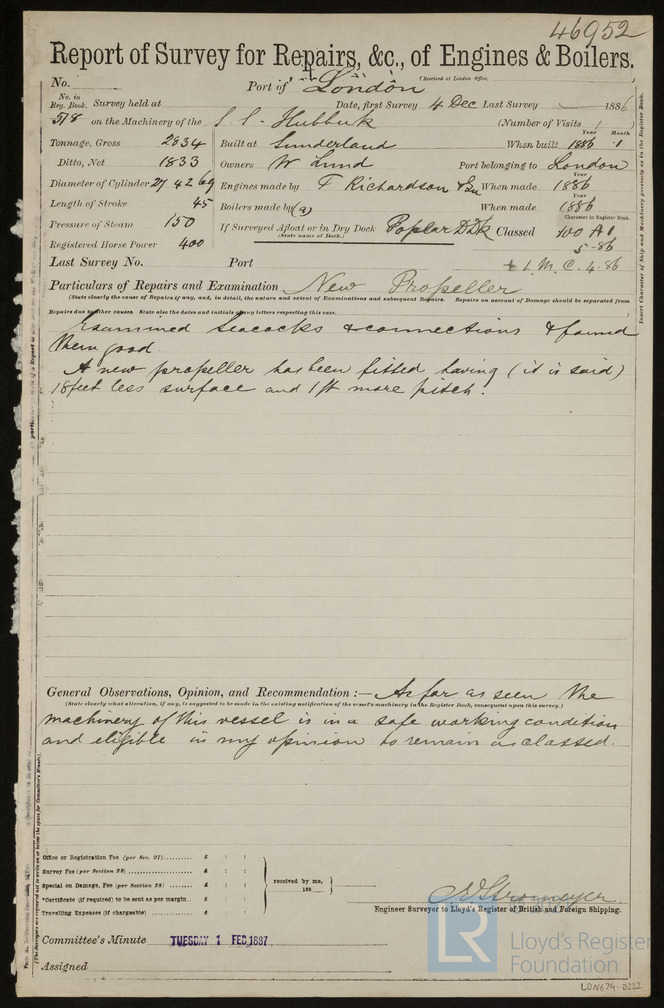 46952
Report of Survey for Repairs, &c., of Engines & Boilers.
(Received at London Office,
No.
Port of London
No. in Reg. Book. Survey held at
Date, first Survey 4 Dec Last Survey 1886
578 on the Machinery of the S.S. Hubbuck
(Number of Visits 1
Year Month
Tonnage, Gross 2834 Built at Sunderland When built 1886 . 1
Ditto, Net 1833 Owners W Lund Port belonging to London
Year
Diameter of Cylinder 27 42 69 Engines made by T Richardson & Son When made 1886
Year
Length of Stroke 45 Boilers made by (a) When made 1886
Character in Register Book
Pressure of Steam 150 If Surveyed Afloat or in Dry Dock Poplar D Dk Classed 100 A1
(State name of Dock.)
5-86
Registered Horse Power 400
Last Survey No. Port + L.M.C. 4.86
Particulars of Repairs and Examination New Propeller
(State clearly the cause of Repairs if any, and, in detail, the nature and extent of Examinations and subsequent Repairs. Repairs on account of Damage should be separated from
Repairs due to other causes. State also the dates and initials of any letters respecting this case.
Examined Seacocks & connections & found
them good
A new propeller has been fitted having (it is said)
18 feet less surface and 1 ft more pitch.
General Observations, Opinion, and Recommendation :— As far as seen the
(State clearly what alteration, if any, is suggested to be made in the existing notification of the vessel's machinery in the Register Book, consequent upon this survey.)
machinery of this vessel is in a safe working condition
and eligible in my opinion to remain as classed.
Office or Registration Fee (per Sec. 27).......... £ : :
Survey Fee (per Section 28)...................... £ : :
Special on Damage, Fee (per Section 28) ....... £ : :
received by me,
188
*Certificate (if required) to be sent as per margin.. £ : :
Travelling Expenses (if chargeable) ............. £ : :
Stromeyer
Engineer Surveyor to Lloyd's Register of British and Foreign Shipping.
Committee's Minute TUESDAY 1 FEB. 1887
Assigned
LR
Lloyd's Register
Foundation
LDN674-0222
Insert Character of Ship and Machinery precisely as in the Register Book.
(The Surveyors are requested not to write on or below the space for Committee's Minute).